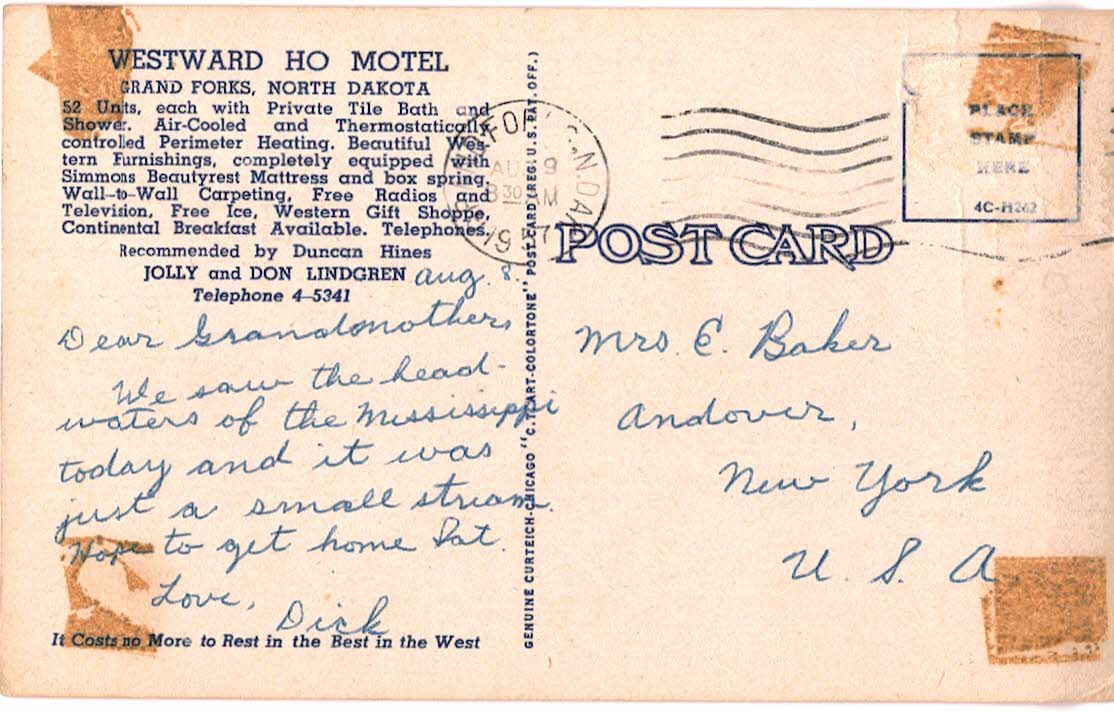 WESTWARD HO MOTEL
GRAND FORKS, NORTH DAKOTA
52 Units, each with Private Tile Bath and
Shower. Air-Cooled and Thermostatically
controlled Perimeter Heating. Beautiful Wes-
tern Furnishings, completely equipped with
Simmons Beautyrest Mattress and box spring.
Wall-to-Wall Carpeting, Free Radios and
Television, Free Ice, Western Gift Shoppe,
Continental Breakfast Available. Telephones.
Recommended by Duncan Hines
JOLLY and DON LINDGREN
Telephone 4-5341
Aug. 8.
Dear Grandmother,
We saw the head-
waters of the Mississippi
today and it was
just a small stream.
Hope to get home Sat.
Love,
Dick
It Costs no More to Rest in the Best in the West
GENUINE CURTEICH-CHICAGO "C.T. ART-COLORTONE" POST CARD (REG. U.S. PAT. OFF.)
AUG 9
8 30 AM
PLACE
STAMP
HERE
4C-H262
POST CARD
Mrs. E. Baker
Andover,
New York
U. S. A